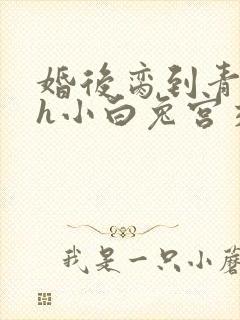 婚後离到青
h小白兔宫
我是一只小蘑